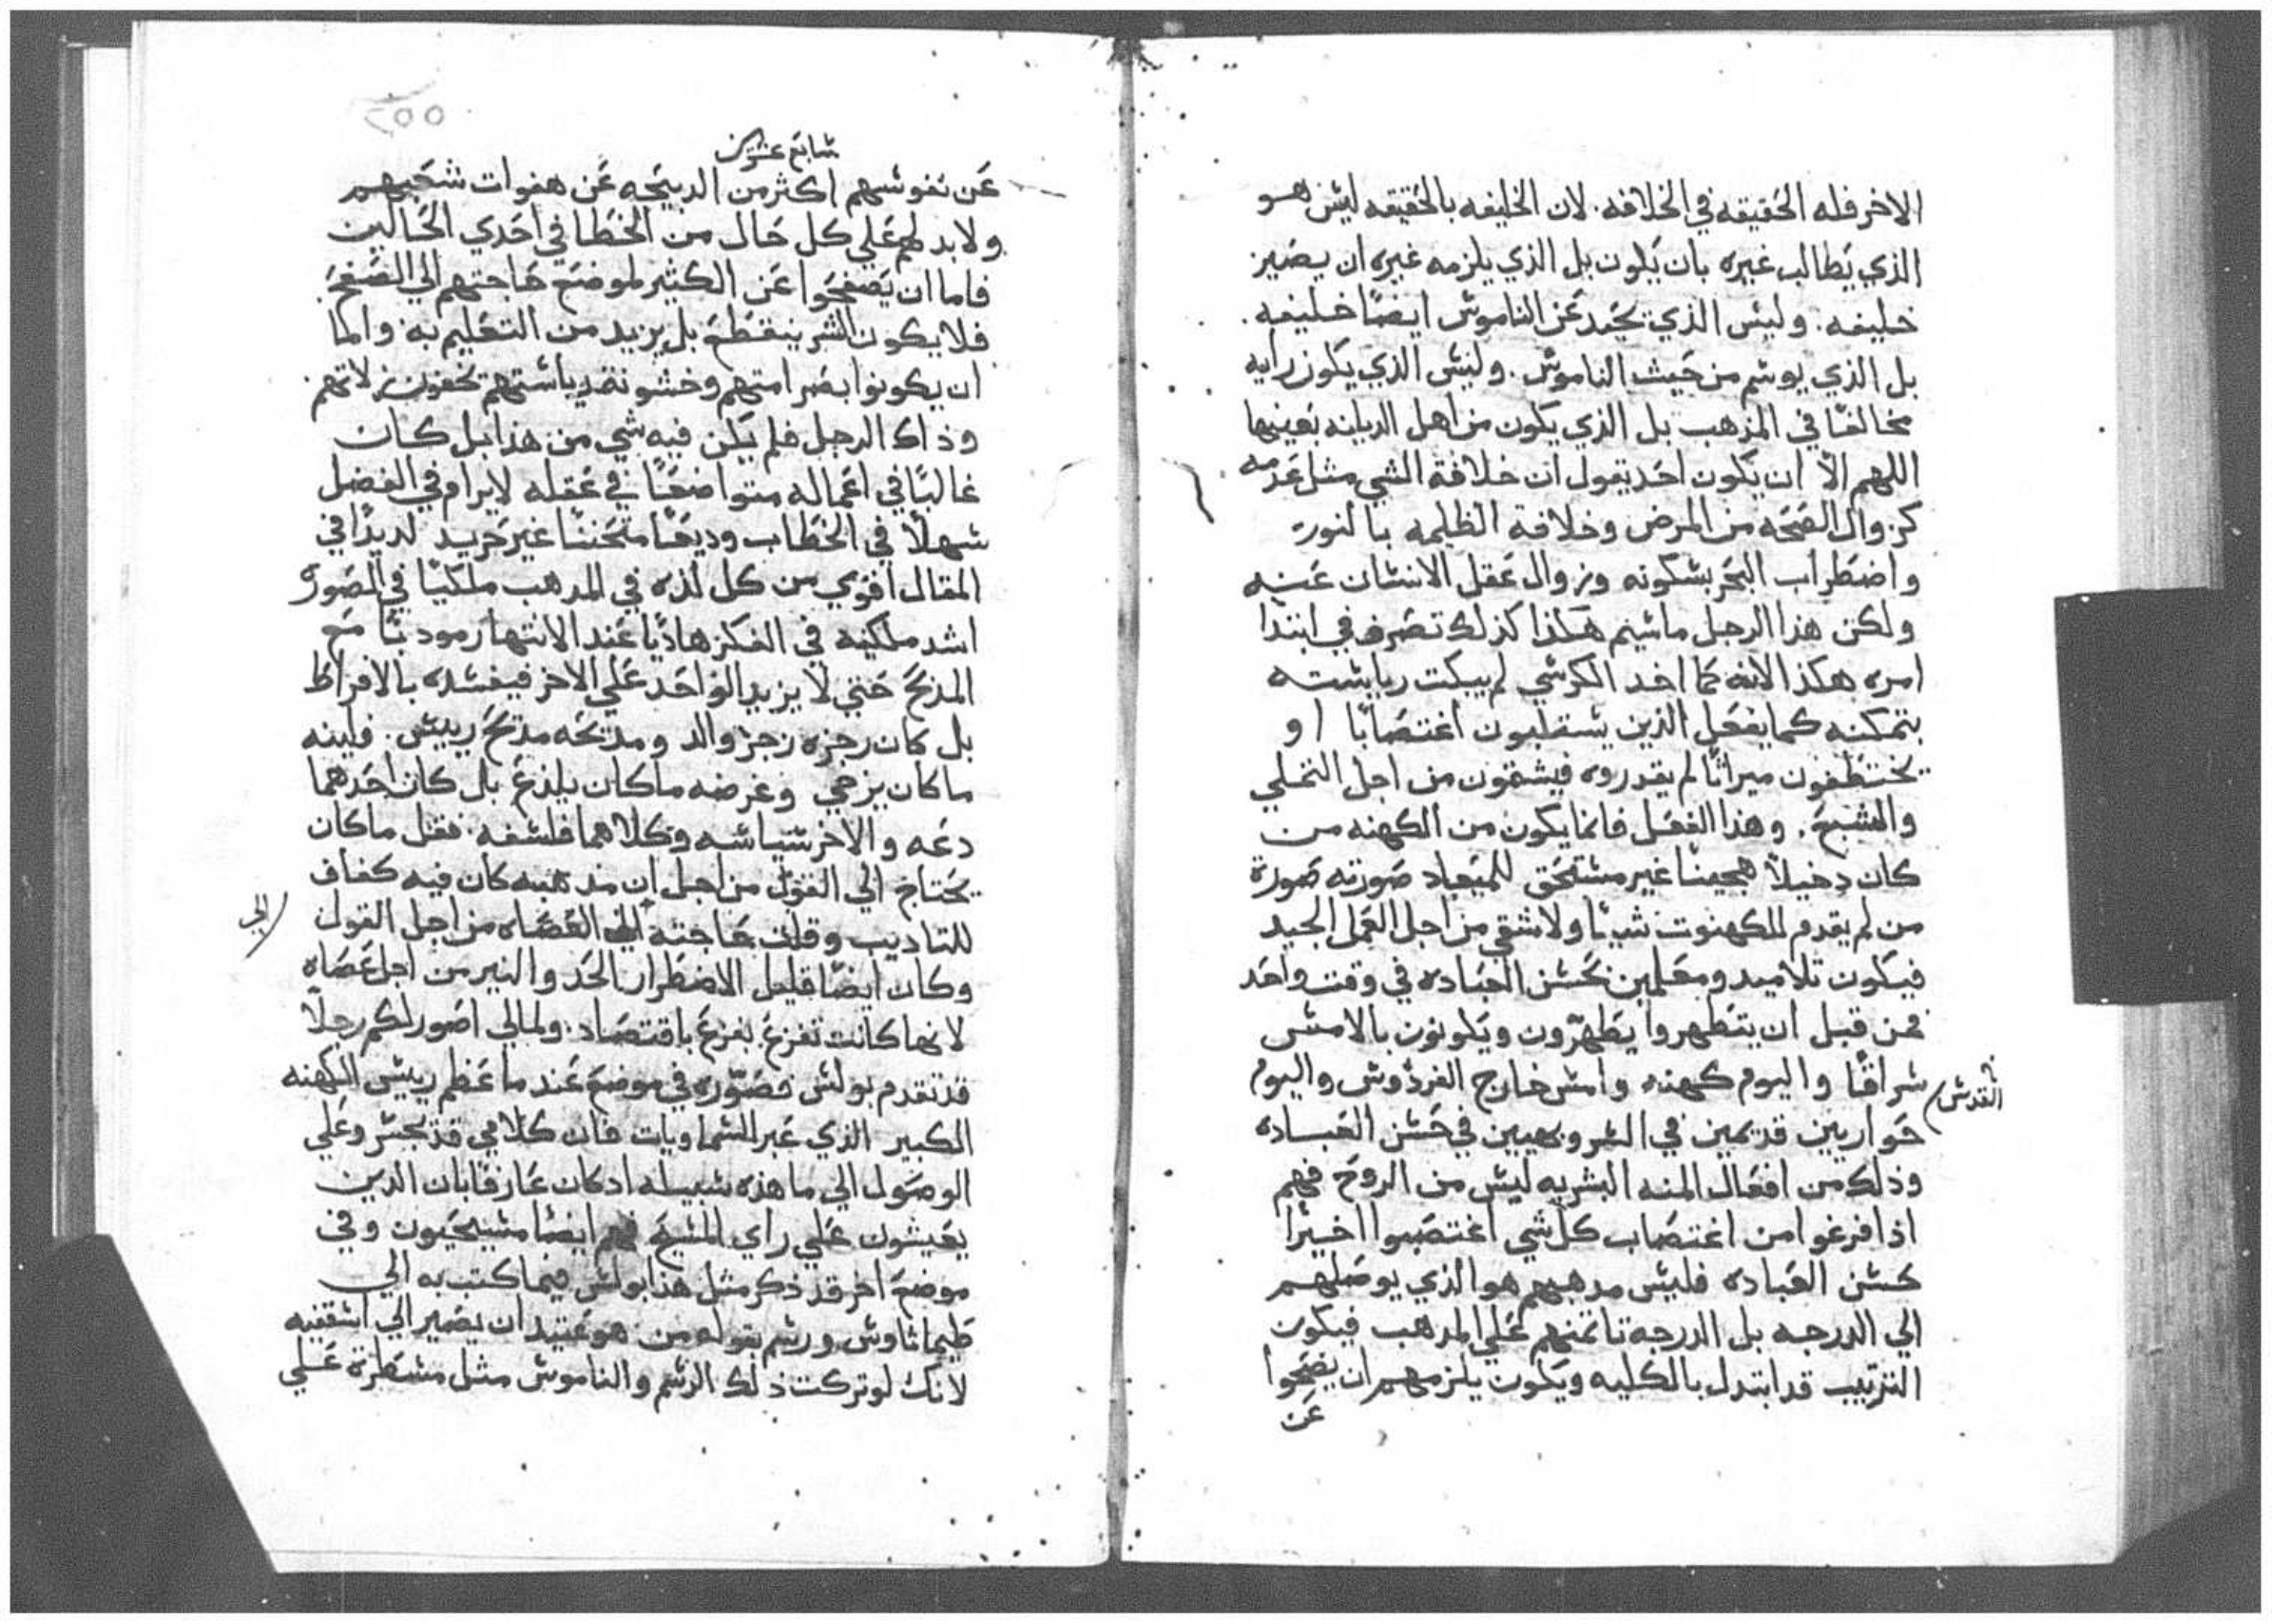 الاخر فله الحقيقه في الخلافه. لان الخليفه بالحقيقه ليس هو
الذي يطالب غيره بان يكون بل الذي يلزمه غيره ان يصير
خليفه. وليس الذي يحيد عن الناموس ايضًا خليفه.
بل الذي يوسم من حيث الناموس. وليس الذي يكون رايه
مخالفًا في المذهب بل الذي يكون من اهل الديانه بعينها
اللهم الا ان يكون احد يقول ان خلافة الشي مثل عدمه
كزوال الصحه من المرض وخلافة الظلمه بالنور
واضطراب البحر بسكونه وزوال عقل الانسان عنه
ولكن هذا الرجل ماسيم هكذا كذلك تصرف في ابتدا
امره هكذا لانه لما اخد الكرسي لم يبكت رياسته
بتمكنه كما يفعل الذين يستقلبون اغتصابًا او
يختطفون ميراثًا لم يقدروه فيشقون من اجل التملي
والشبع. وهذا الفعل فانما يكون من الكهنه من
كان دخيلاً هجينًا غير مستحق للميعاد صورته صورة
من لم يقدم للكهنوت شيًا ولا شقي من اجل العمل الجيد
فيكون تلاميد ومعلمين بحسن العباده في وقت واحد
فمن قبل ان يتطهروا يطهرون ويكونون بالامس
سراقًا واليوم كهنه وامس خارج الفردوس واليوم
القدس
حواريين قديمين في الشر وبهيين في حسن العباده
وذلك من افعال المنه البشريه ليس من الروح فهم
اذا فرغوا من اغتصاب كل شي اغتصبوا اخيرًا
حسن العباده فليس مدهبهم هو الذي يوصلهم
الي الدرجه بل الدرجه تاتمنهم علي المدهب فيكون
الترتيب قد ابتدل بالكليه ويكون يلزمهم ان يضحوا
عن
٢٥٥
سابع عشرين
عن نفوسهم اكثر من الدبيحه عن هفوات شعبهم
ولا بد لهم علي كل حال من الخطا في احدي الحالين
فاما ان يصفحوا عن الكثير لموضع حاجتهم الي الصفح.
فلا يكون الشر ينقطع بل يزيد من التعليم به. واما
ان يكونوا بصرامتهم وخشونة رياستهم يخفون زلاتهم.
وذاك الرجل فلم يكن فيه شي من هذا بل كان
غالبًا في اعماله متواضعًا في عقله لا يرام في الفضل
سهلاً في الخطاب وديعًا متحننًا غير حريد لديدًا في
المقال اقوي من كل لذه في المدهب ملكيًا في الصوره
اشد ملكيه في الفكر هاديًا عند الانتهار مودبًا مع
المدح حتي لا يزيد الواحد علي الاخر فيفسده بالافراط
بل كان زجره زجر والد ومدحه مدح رييس. فلينه
ما كان يزهي وغرضه ما كان يلدغ بل كان احدهما
دعه والاخر سياسه وكلاهما فلسفه. فقل ما كان
يحتاج الي القول من اجل ان مدهبه كان فيه كفاف
للتاديب وقلت حاجته الي العصاه من اجل القول
الي
وكان ايضًا قليل الاضطرار الحد والنير من اجل عصاه
لانها كانت تفزع بفزع باقتصاد. ولما لي اصور لكم رجلاً
قد تقدم بولس فصوره في موضع عند ما عظم رييس الكهنه
الكبير الذي عبر السماويات فان كلامي قد يجسر وعلي
الوصول الي ما هذه سبيله ادكان عارفًا بان الدين
يعيشون علي راي المسيح فهم ايضًا مسيحيون وفي
موضع اخر قد ذكر مثل هذا بولس فيما كتب به الي
طيماثاوس ورسم بقوله من هو عتيد ان يصير الي اسقفيه
لانك لو تركت ذلك الرسم والناموس مثل مسطرة علي